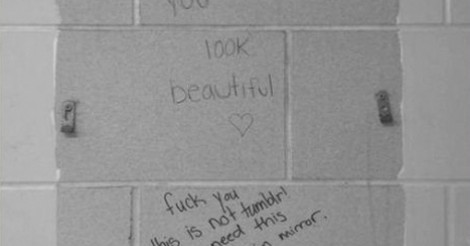 YOU
look
beautiful
fuck you
this is not tumblr!
need this
mirror.